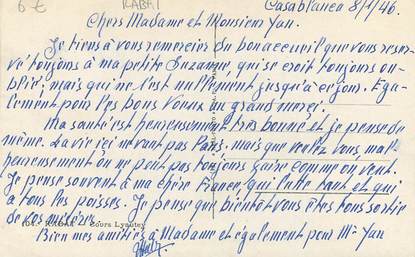 6 € RABAT
Casablanca 8/1/46.
Chers Madame et Monsieur Yan.
Je tiens à vous remercier du bon accueil que vous reser
vé toujours à ma petite Suzanne, qui se croit toujours ou-
bliée; mais qui ne l'est nullement jusqu'à ce jour. Ega-
lement pour les bons voeux au grand merci.
Ma santé est heureusement très bonne et je pense de
même. La vie ici ne vaut pas Paris. mais que voulez vous, mal
heureusement on ne peut pas toujours faire comme on veut.
Je pense souvent à ma chère France, qui lutte tant et qui
a tous les poisses. Je pense que bientôt vous êtes tous sortie
de vos misères.
RABAT — Cours Lyautey
Bien mes amitiés à Madame et également pour Mr Yan